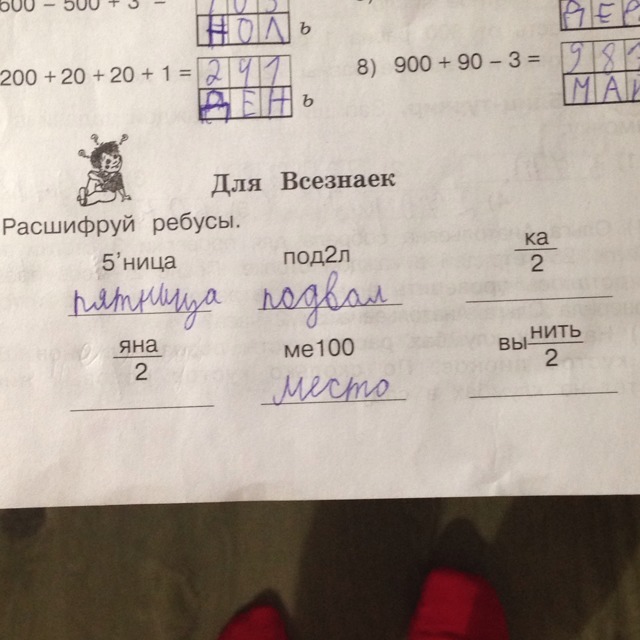 600 - 500 + 3 =
НОЛ ь
200 + 20 + 20 + 1 = 241
ДЕН ь
8) 900 + 90 - 3 = 98
МА
Для Всезнаек
Расшифруй ребусы.
5'ница под2л ка/2
пятница подвал
яна/2 ме100 вы нить/2
место